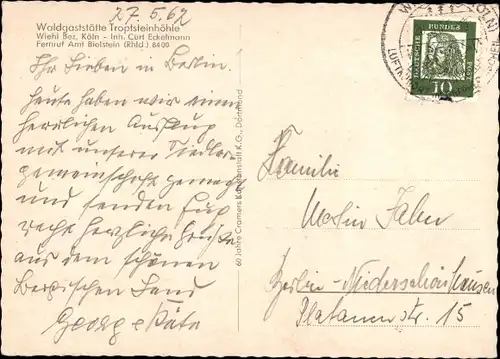 27. 5. 62
Waldgaststätte Tropfsteinhöhle
Wiehl Bez. Köln - Inh. Curt Eckelmann
Fernruf Amt Bielstein (Rhld.) 8400
Ihr Lieben in Berlin.
Heute haben wir einen
herrlichen Ausflug
mit unserer Siedler-
gemeinschaft gemacht
und senden Euch
recht herzliche Grüße
aus dem schönen
Bergischen Land
Georg Käte
60 Jahre Cramers Kunstanstalt K.G., Dortmund
DEUTSCHE BUNDESPOST
10
Familie
Jahn
Berlin-Niederschönhausen
Platanenstr. 15